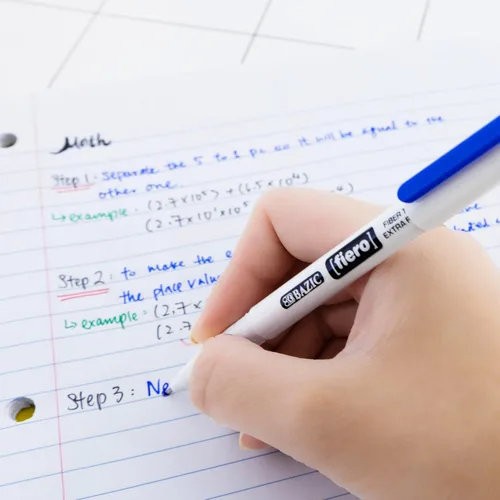 Math
Step 1: Separate the 5 to 1 pl. so it will be equal to the
other one.
↳ example: (2.7×10⁵) + (6.5×10⁴)
(2.7×10¹×10⁵
Step 2: to make the
the place value
↳ example: (2.7×
(2.7
Step 3: Ne
BAZIC [fiero] FIBER
EXTRA F